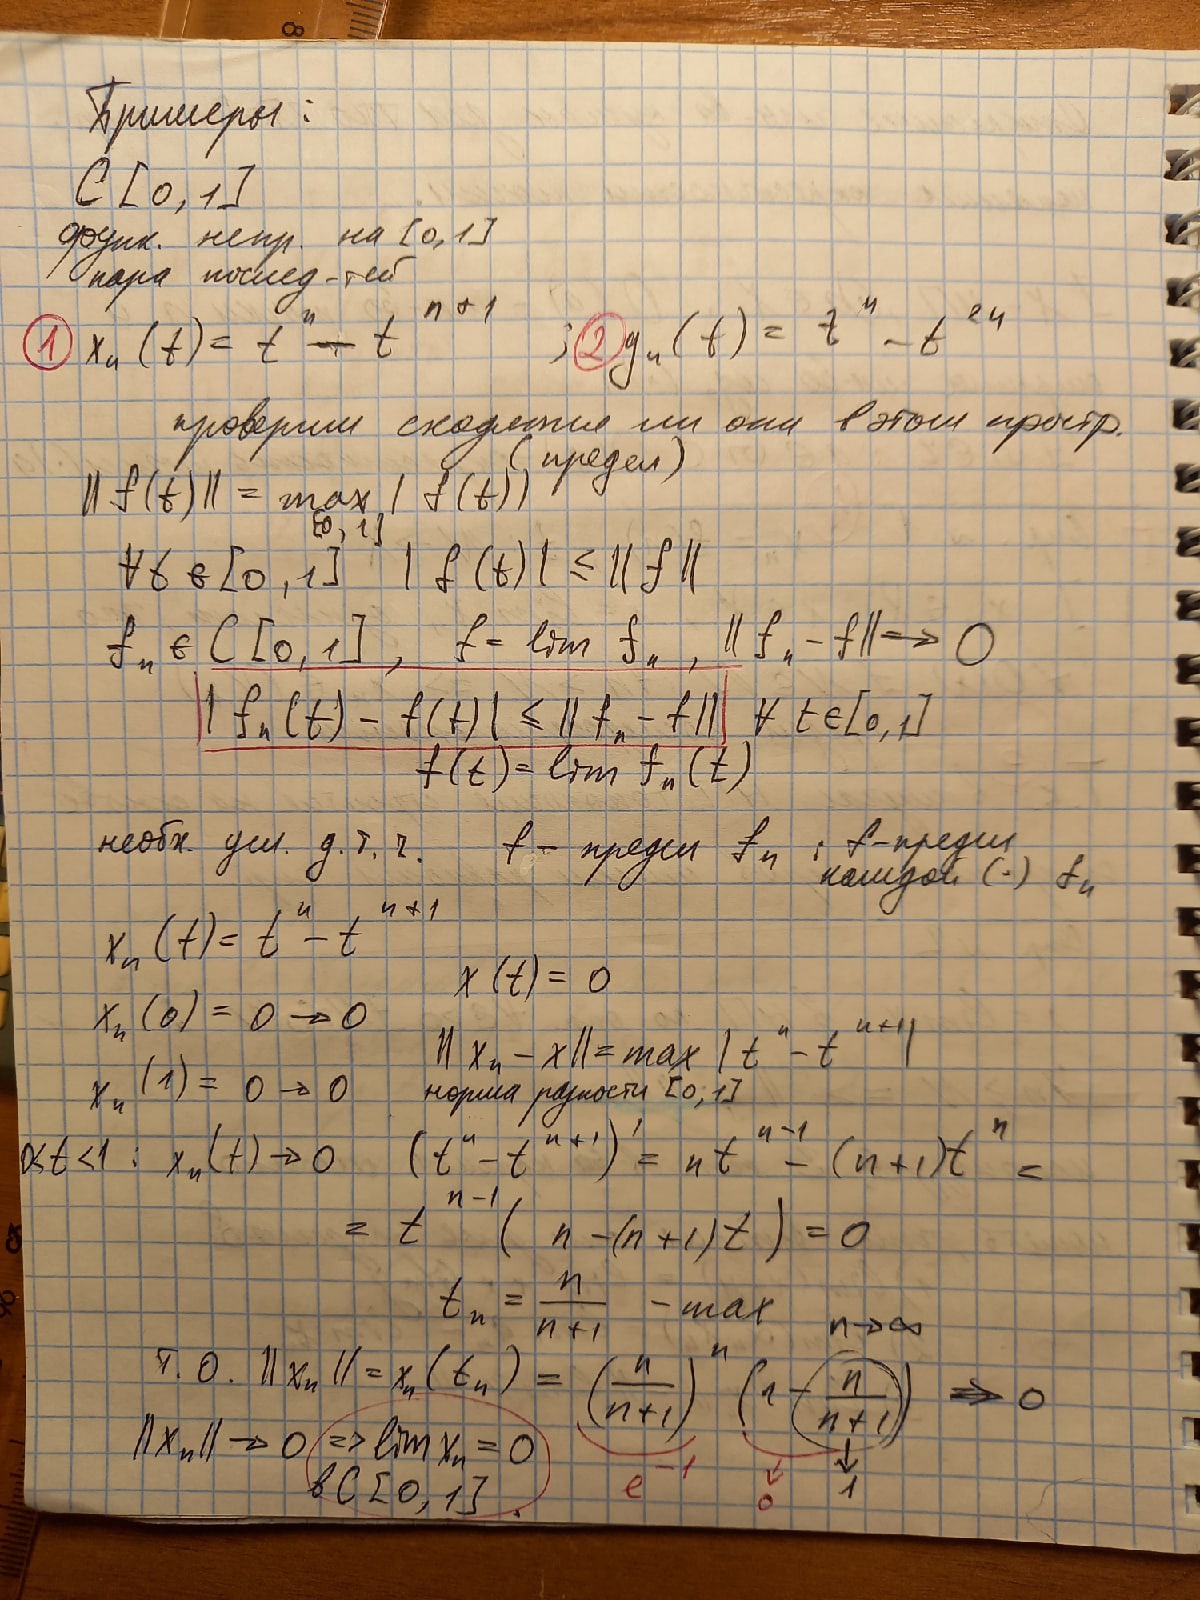 Примеры:
C[0,1]
функ. непр. на [0,1]
пара послед-тей
① xₙ(t) = tⁿ − tⁿ⁺¹ ; ② yₙ(t) = tⁿ − t²ⁿ
проверим сходятся ли они в этом простр.
(предел)
||f(t)|| = max |f(t)|
[0,1]
∀t ∈ [0,1] |f(t)| ≤ ||f||
fₙ ∈ C[0,1], f = lim fₙ, ||fₙ − f|| → 0
|fₙ(t) − f(t)| ≤ ||fₙ − f|| ∀ t ∈ [0,1]
f(t) = lim fₙ(t)
необх. усл. д.т.ч. f − предел fₙ : f − предел
каждой (·) fₙ
xₙ(t) = tⁿ − tⁿ⁺¹
x(t) = 0
xₙ(0) = 0 → 0
||xₙ − x|| = max |tⁿ − tⁿ⁺¹|
xₙ(1) = 0 → 0 норма разности [0,1]
0<t<1 : xₙ(t) → 0 (tⁿ − tⁿ⁺¹)' = ntⁿ⁻¹ − (n+1)tⁿ =
= tⁿ⁻¹ (n − (n+1)t) = 0
tₙ = n/(n+1) − max
n→∞
т.о. ||xₙ|| = xₙ(tₙ) = (n/(n+1))ⁿ (1 − n/(n+1)) ⇒ 0
||xₙ|| → 0 ⇒ lim xₙ = 0
в C[0,1].
e⁻¹ ↓ 0 ↓ 1